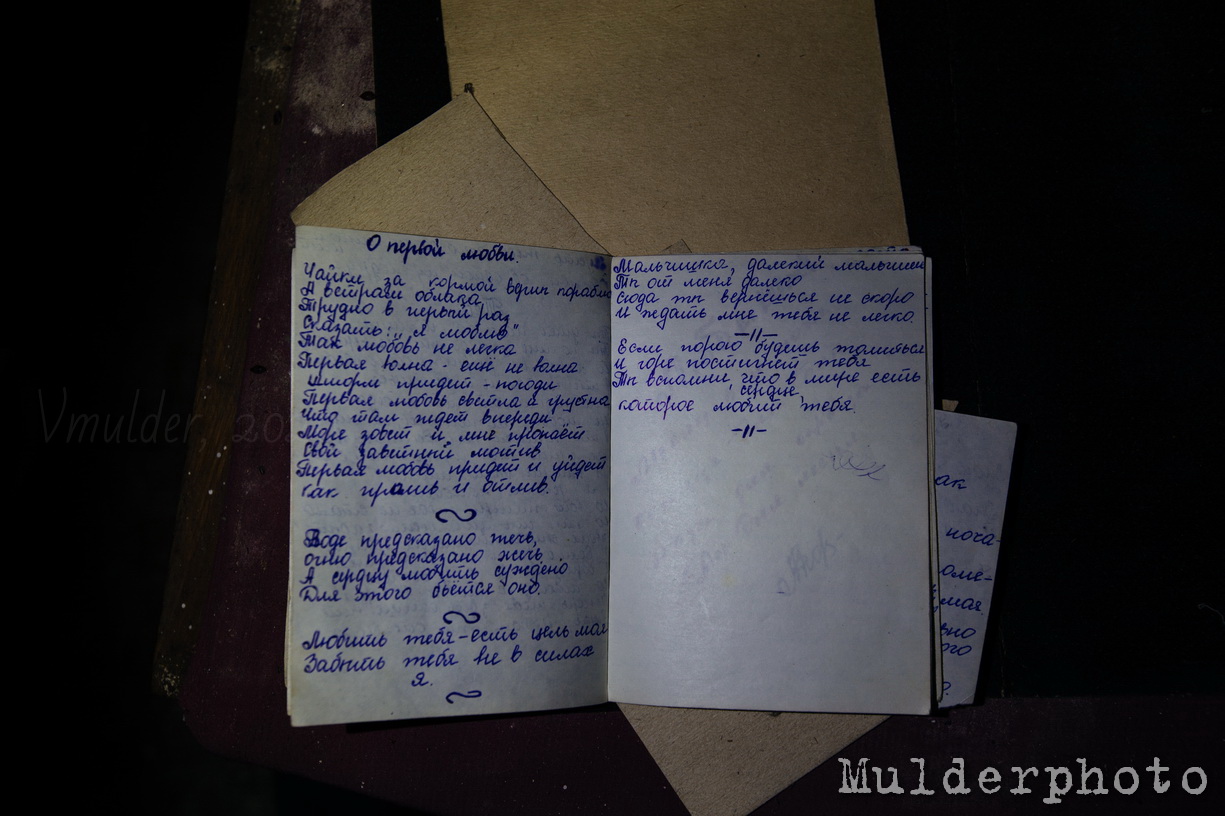 О первой любви
Чайки за кормой верны кораблю
А ветрам облака
Трудно в первый раз
Сказать: „Я люблю"
Так любовь не легка
Первая волна - ещё не волна
шторм придет - погоди
Первая любовь светла и грустна
Что там ждет впереди
Море зовет и мне пропоёт
Свой заветный мотив
Первая любовь придет и уйдет
как прилив и отлив.
Воде предсказано течь,
огню предсказано жечь
А сердцу любить суждено
Для этого бьётся оно.
Любить тебя - есть цель моя
Забыть тебя не в силах
я.
Мальчишка, далекий мальчишка
Ты от меня далеко
сюда ты вернёшься не скоро
и ждать мне тебя не легко.
-//-
Если порою будешь томиться
и горе постигнет тебя
Ты вспомни, что в мире есть
сердце,
которое любит тебя.
-//-
ак
ноча-
оме-
мая.
вно
ого
?
Vmulder, 20
Mulderphoto